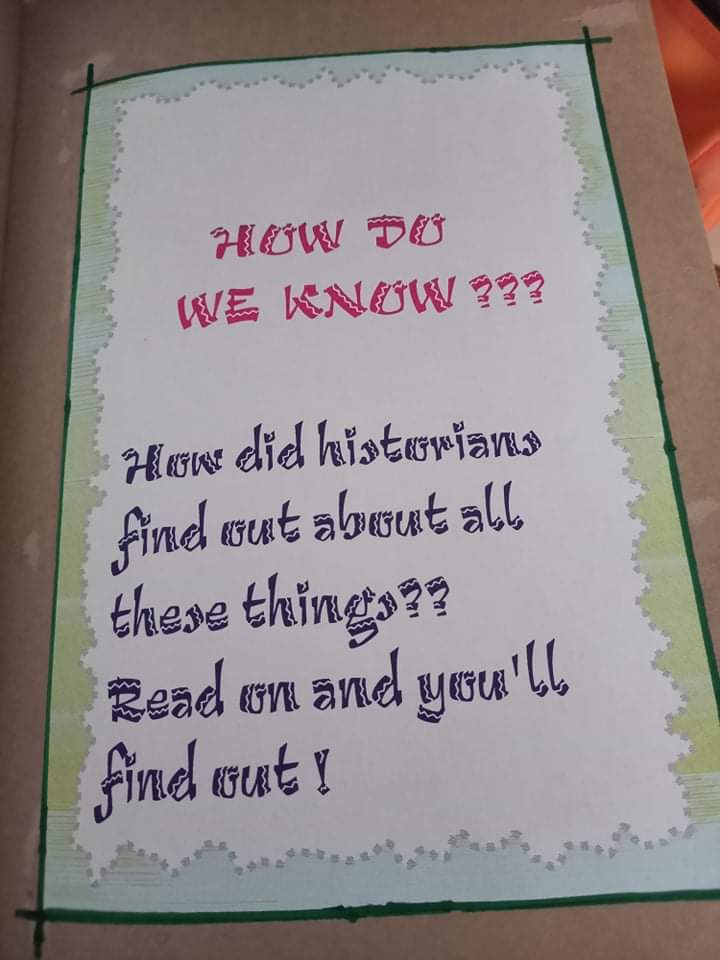 HOW DO
WE KNOW ???
How did historians
find out about all
these things??
Read on and you'll
find out !